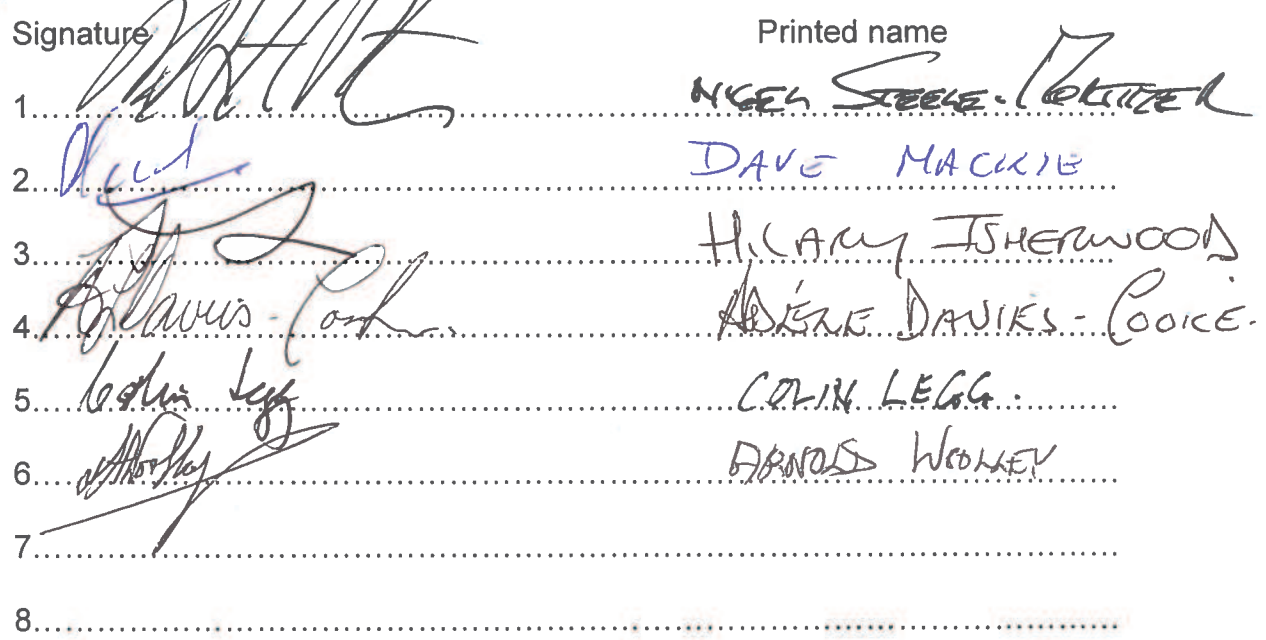 Signature Printed name
1. NIGEL STEELE-MORTIMER
2. DAVE MACKIE
3. HILARY ISHERWOOD
4. Davies-Cooke ADÉLE DAVIES-COOKE.
5. Colin Legg COLIN LEGG.
6. ARNOLD WOOLLEY
7.
8.